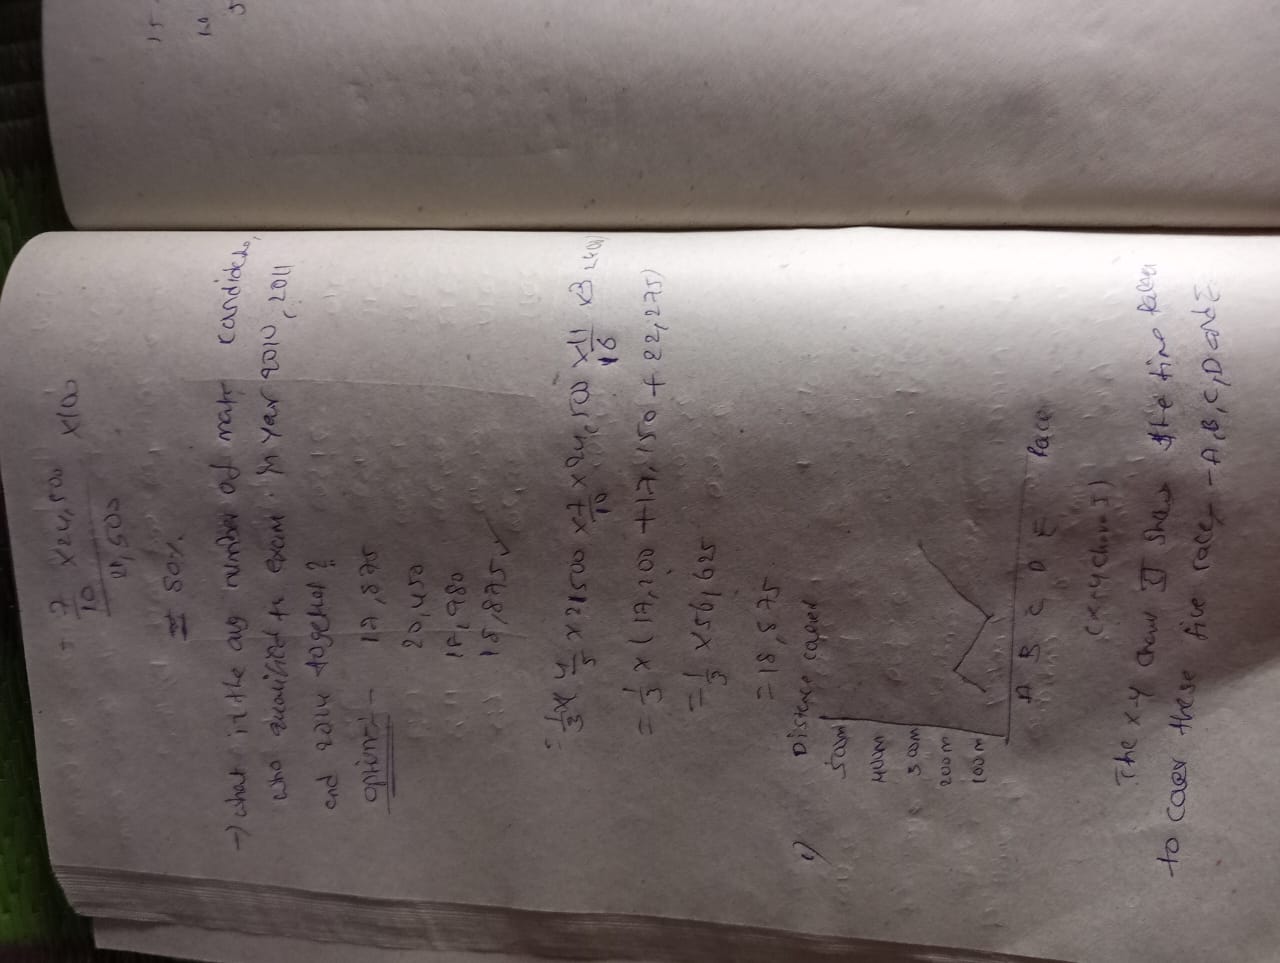 = 7/10 × 24,500 × 100
21,500
= 80%
→ what is the avg number of male candidates,
who qualified the exam. In year 2010, 2011
and 2014 together?
option:-
17,875
20,450
18,875 ✓
= 1/3 × 4/5 × 21500 × 7/10 × 24,500 × 11/16
= 1/3 × (17,200 + 17,150 + 22,275)
= 1/3 × 56,625
= 18,875
Distance
500m
400m
300m
200m
100m
A B C D E Race
(x+y chart I)
The x-y chart II show the time taken
to cover these five race - A, B, C, D and E